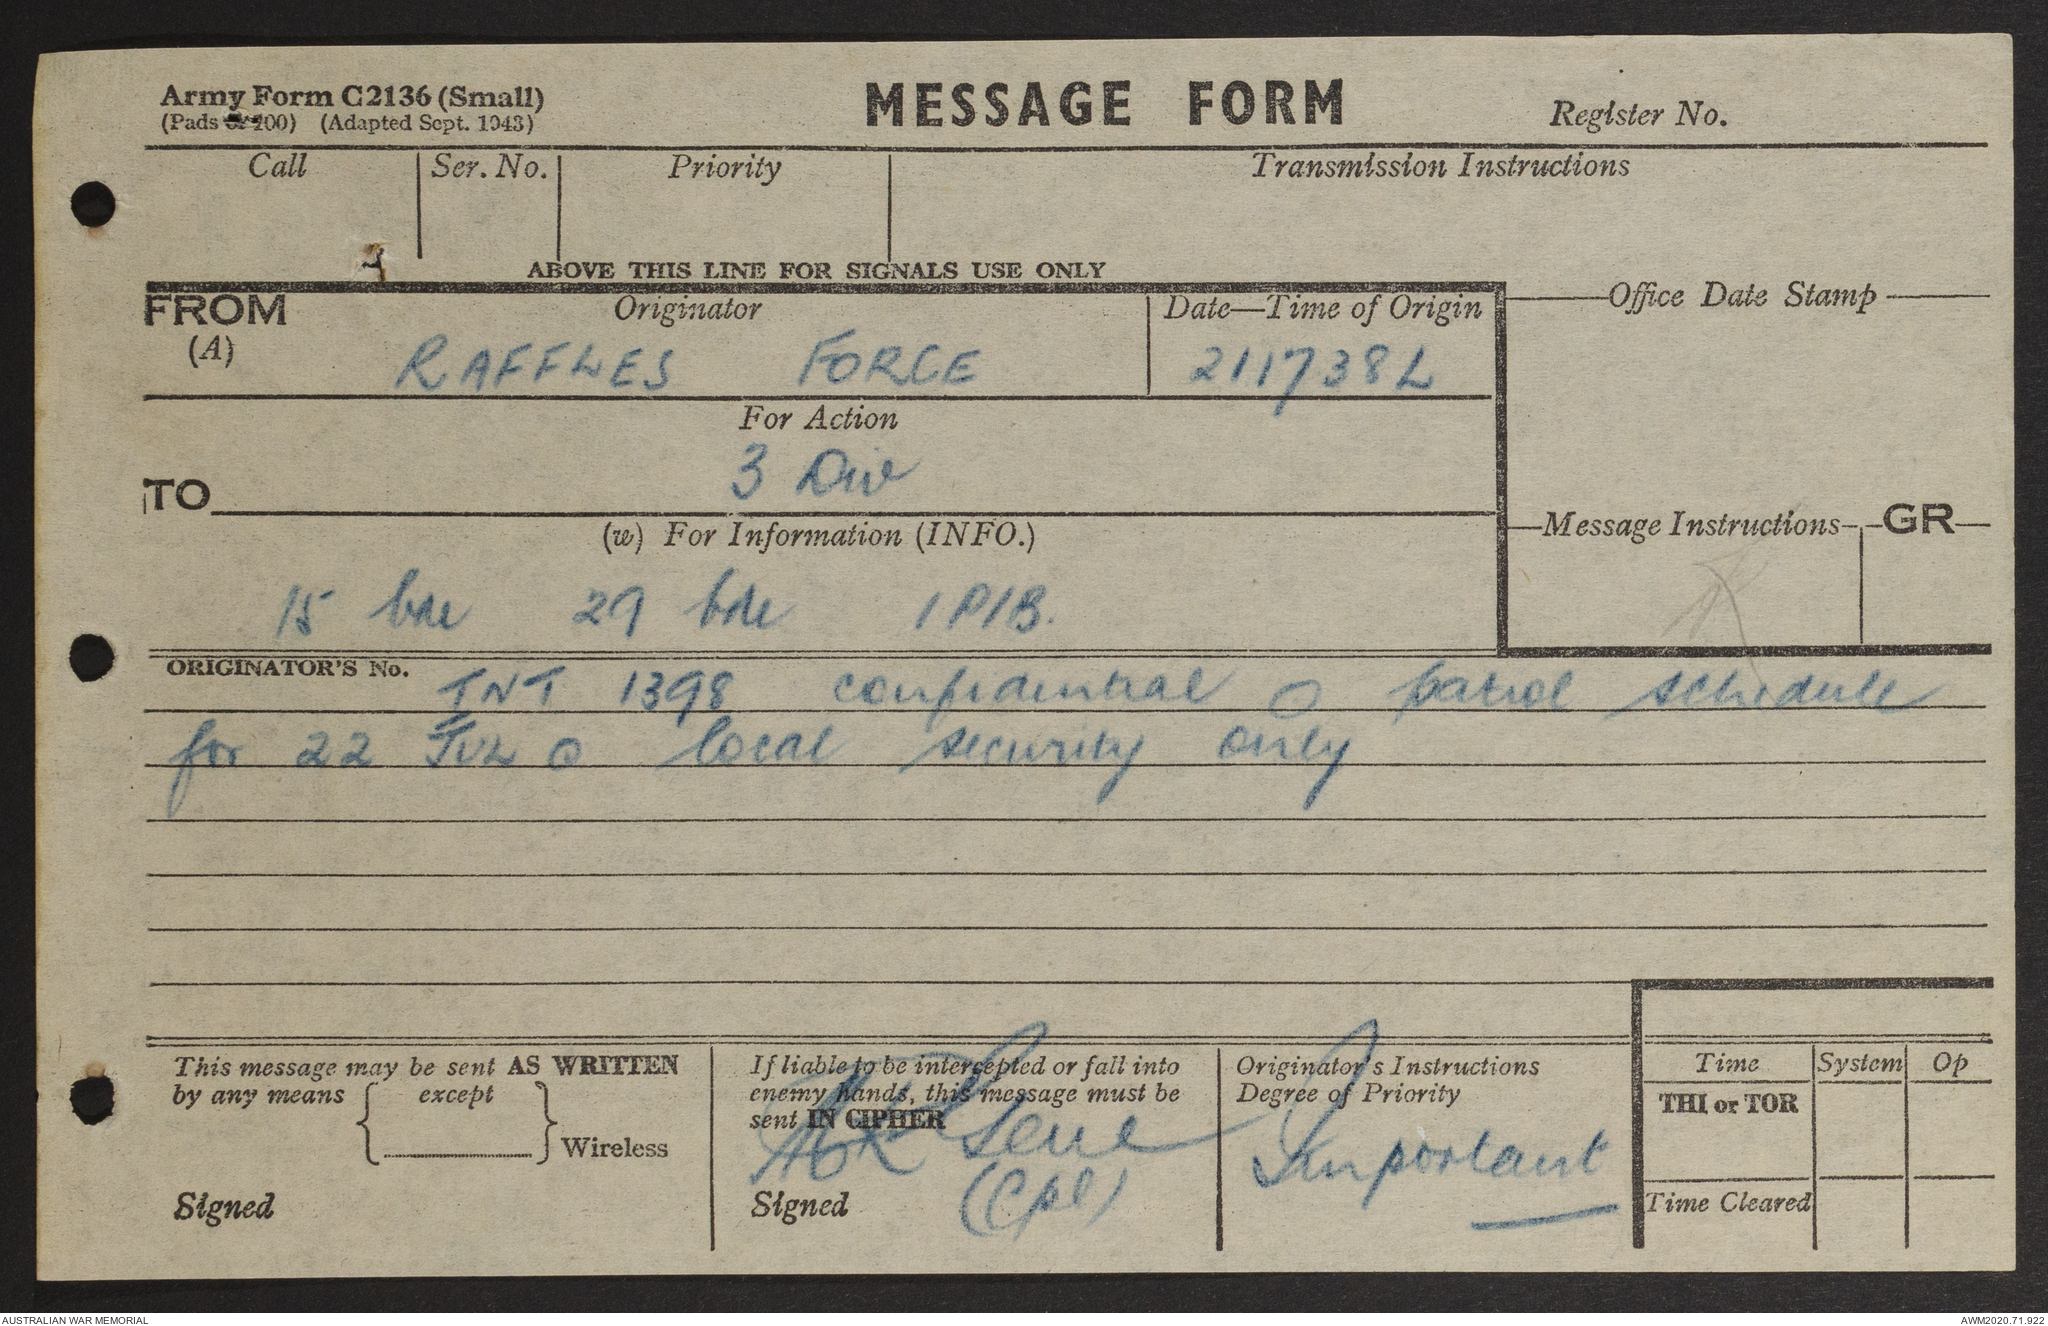 Army Form C2136 (Small)
MESSAGE FORM
Register No.
(Pads or 100) (Adapted Sept. 1943)
Call
Ser. No.
Priority
Transmission Instructions
ABOVE THIS LINE FOR SIGNALS USE ONLY
FROM
(A)
Originator
Date—Time of Origin
Office Date Stamp
RAFFLES FORCE
211738L
For Action
3 Div
TO
(w) For Information (INFO.)
Message Instructions
GR
15 bde 29 bde 1 PIB.
ORIGINATOR'S No.
TNT 1398 confidential O patrol schedule
for 22 JUL O local security only
This message may be sent AS WRITTEN
by any means except
Wireless
Signed
If liable to be intercepted or fall into
enemy hands, this message must be
sent IN CIPHER
(Cpl)
Signed
Originator's Instructions
Degree of Priority
Important
Time
System
Op
THI or TOR
Time Cleared
AUSTRALIAN WAR MEMORIAL
AWM2020.71.922